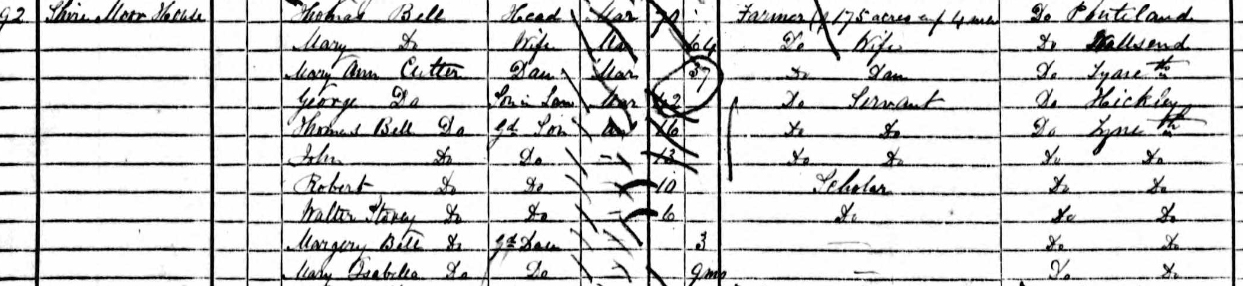 92 Shire Moor House Thomas Bell Head Mar 70 Farmer of 175 acres emp 4 men Do Ponteland
Mary Do Wife Mar 64 Do Wife Do Wallsend
Mary Ann Cutter Dau Mar 37 Do Dau Do Tynemth
George Do Son in Law Mar 42 Do Servant Do Hickley
Thomas Bell Do gd Son un 16 Do Do Do Tynemth
John Do Do - 13 Do Do Do Do
Robert Do Do 10 Scholar Do Do
Walter Storey Do Do - 6 Do Do Do
Margery Bell Do gd Dau 3 — Do Do
Mary Isabella Do Do 9mo — Do Do